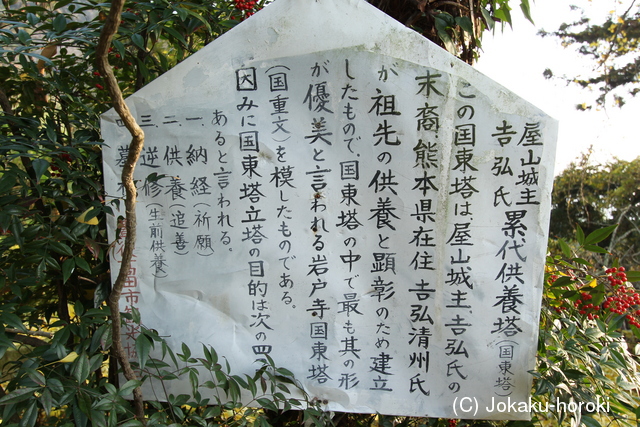 屋山城主
吉弘氏 累代供養塔(国東塔
この国東塔は、屋山城主、吉弘氏の
末裔熊本県在住 吉弘清州氏
が祖先の供養と顕彰のため建立
したもので、国東塔の中で最も其の形
が優美と言われる岩戸寺国東塔
(国重文)を模したものである。
因みに国東塔立塔の目的は次の四
あると言われる。
一、納経(祈願)
二、供養追善
三、逆修(生前供養)
四、墓
(C) Jokaku-horoki